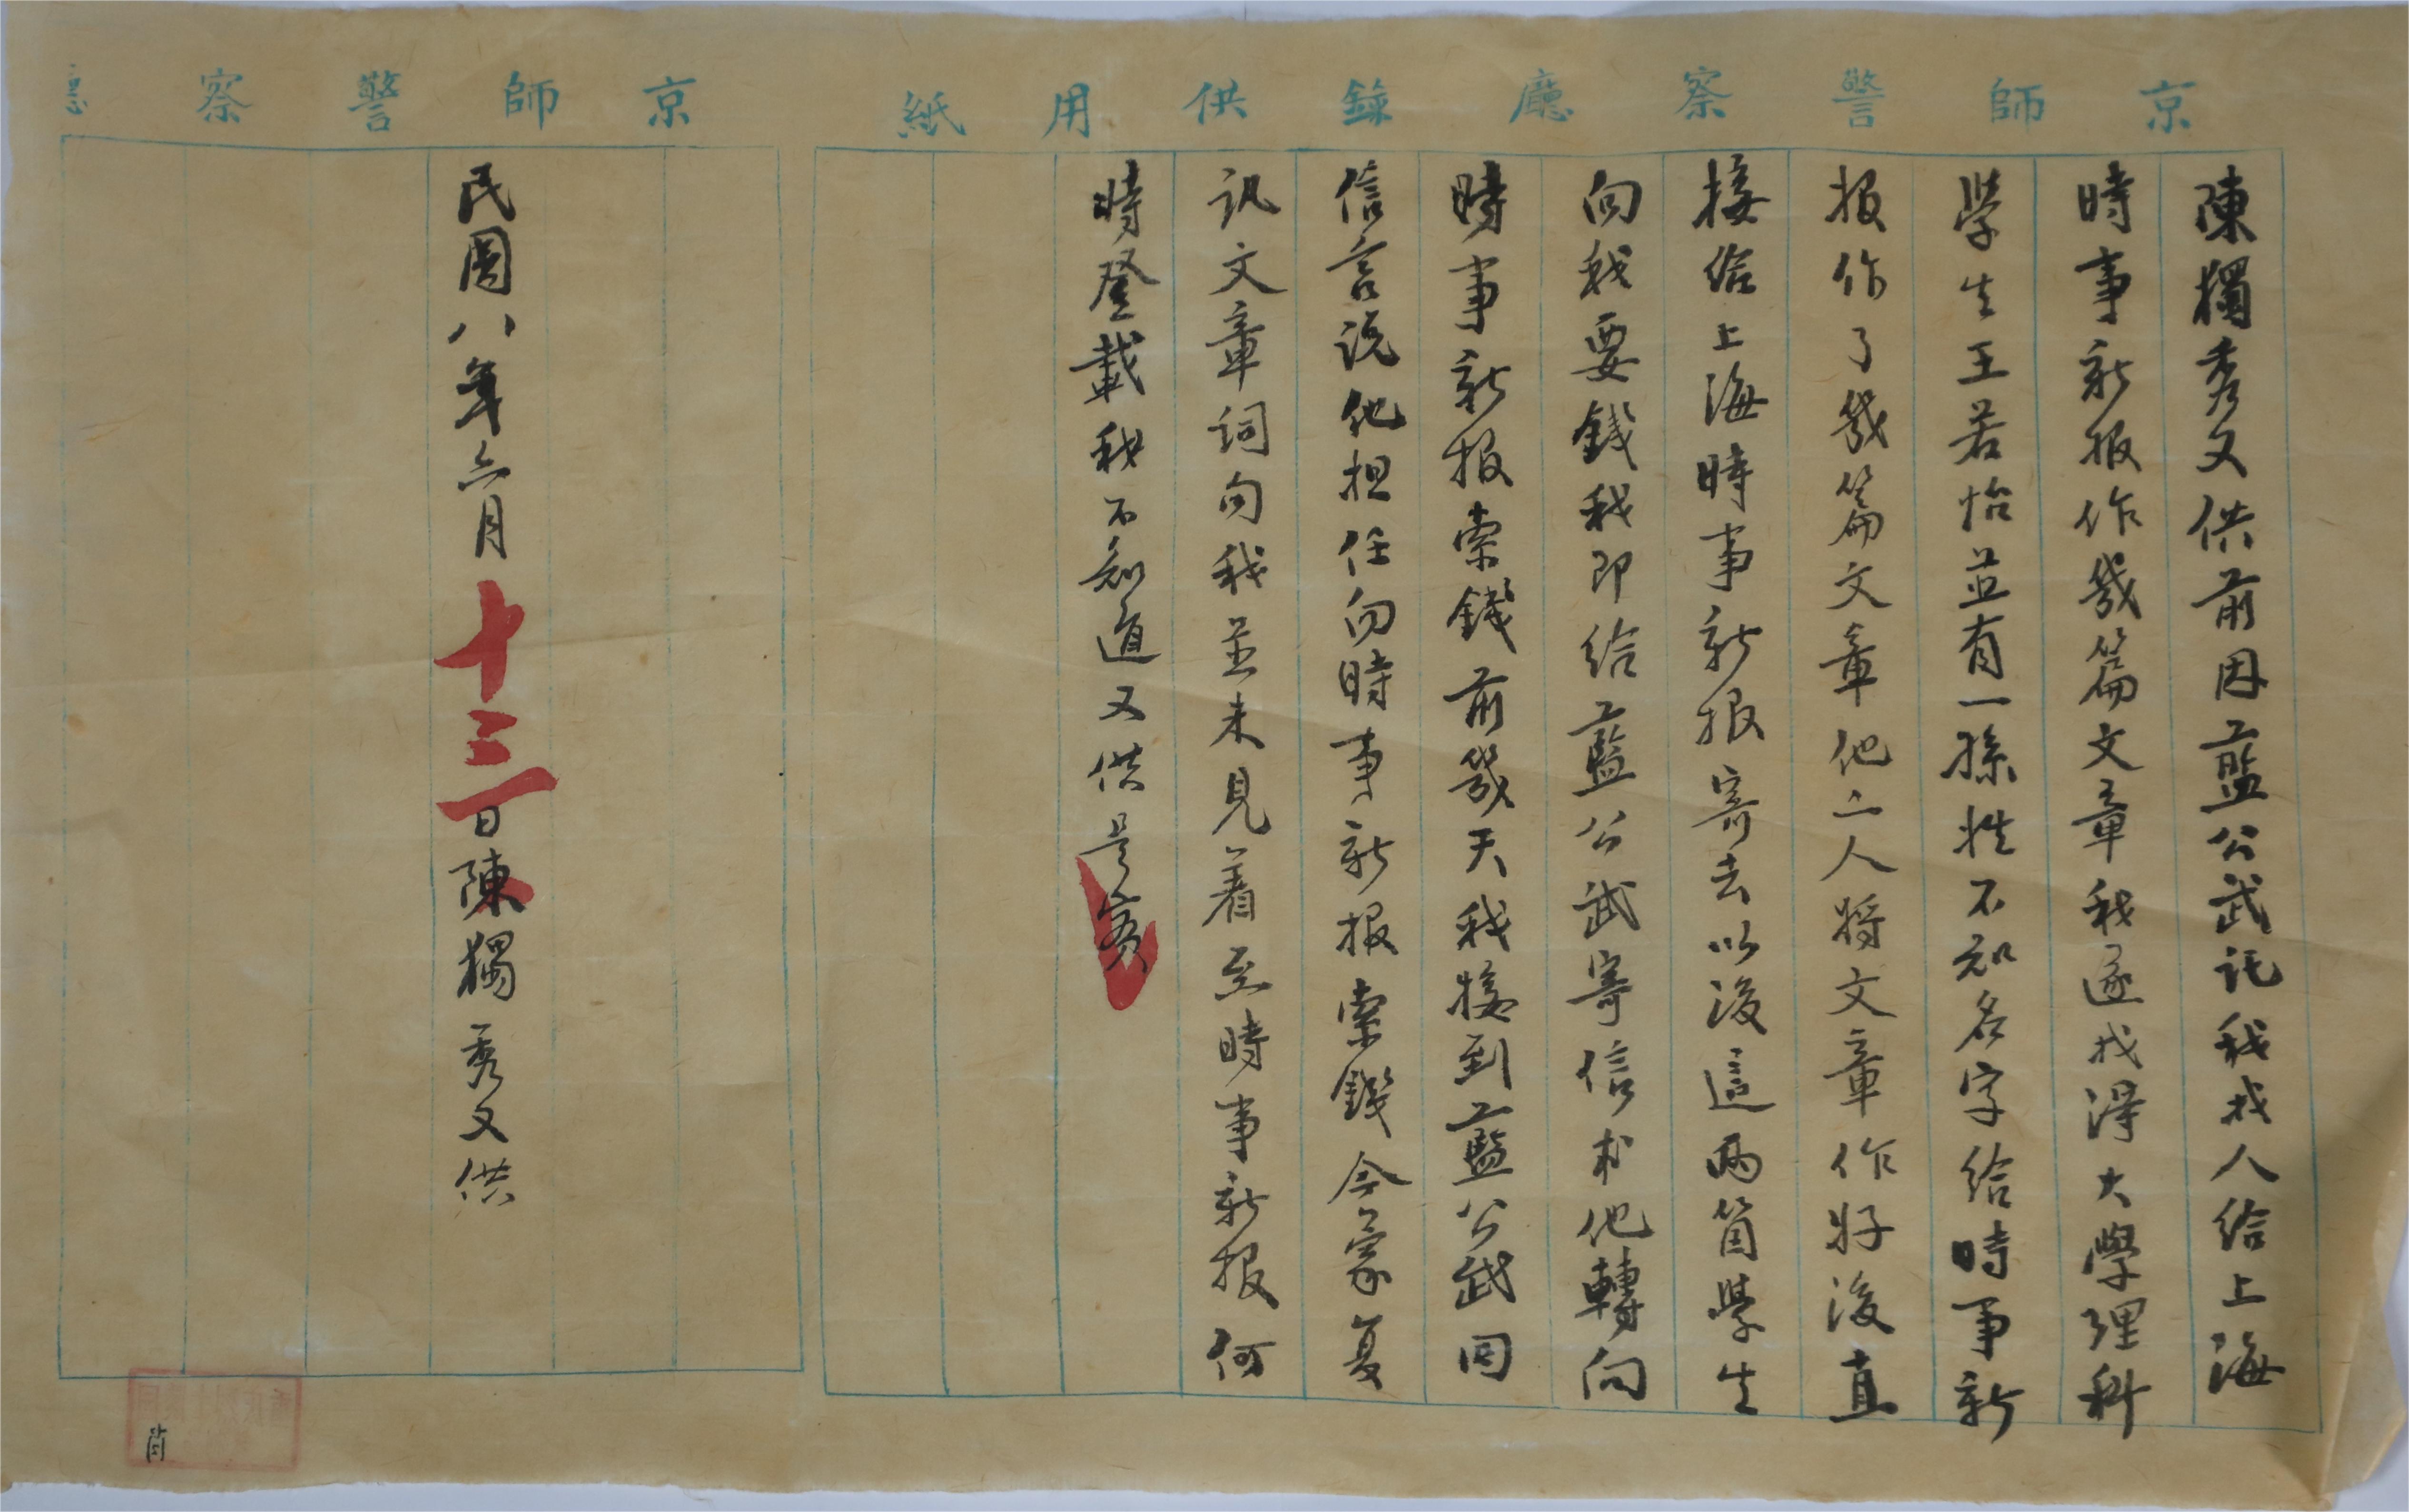 京師警察廳錄供用紙
陳獨秀又供前因藍公武託我找人給上海
時事新报作幾篇文章我遂找得大學理科
學生王若怡並有一孫姓不知名字給時事新
报作了幾篇文章他二人將文章作好後直
接給上海時事新报寄去以後這兩箇學生
向我要錢我即給藍公武寄信求他轉向
時事新报索錢前幾天我接到藍公武回
信言说他担任向時事新报索錢今蒙复
訊文章词句我並未見着至時事新报何
時登載我不知道又供是實
京師警察廳
民國八年六月十三日陳獨秀又供